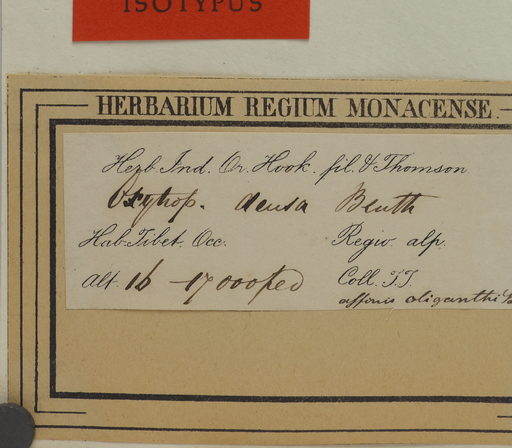 ISOTYPUS
HERBARIUM REGIUM MONACENSE.
Herb. Ind. Or. Hook. fil. & Thomson
Oxytrop. densa Benth
Hab. Tibet. Occ. Regio alp.
Alt. 16 - 17000 ped Coll. T.T.
affinis oliganthi